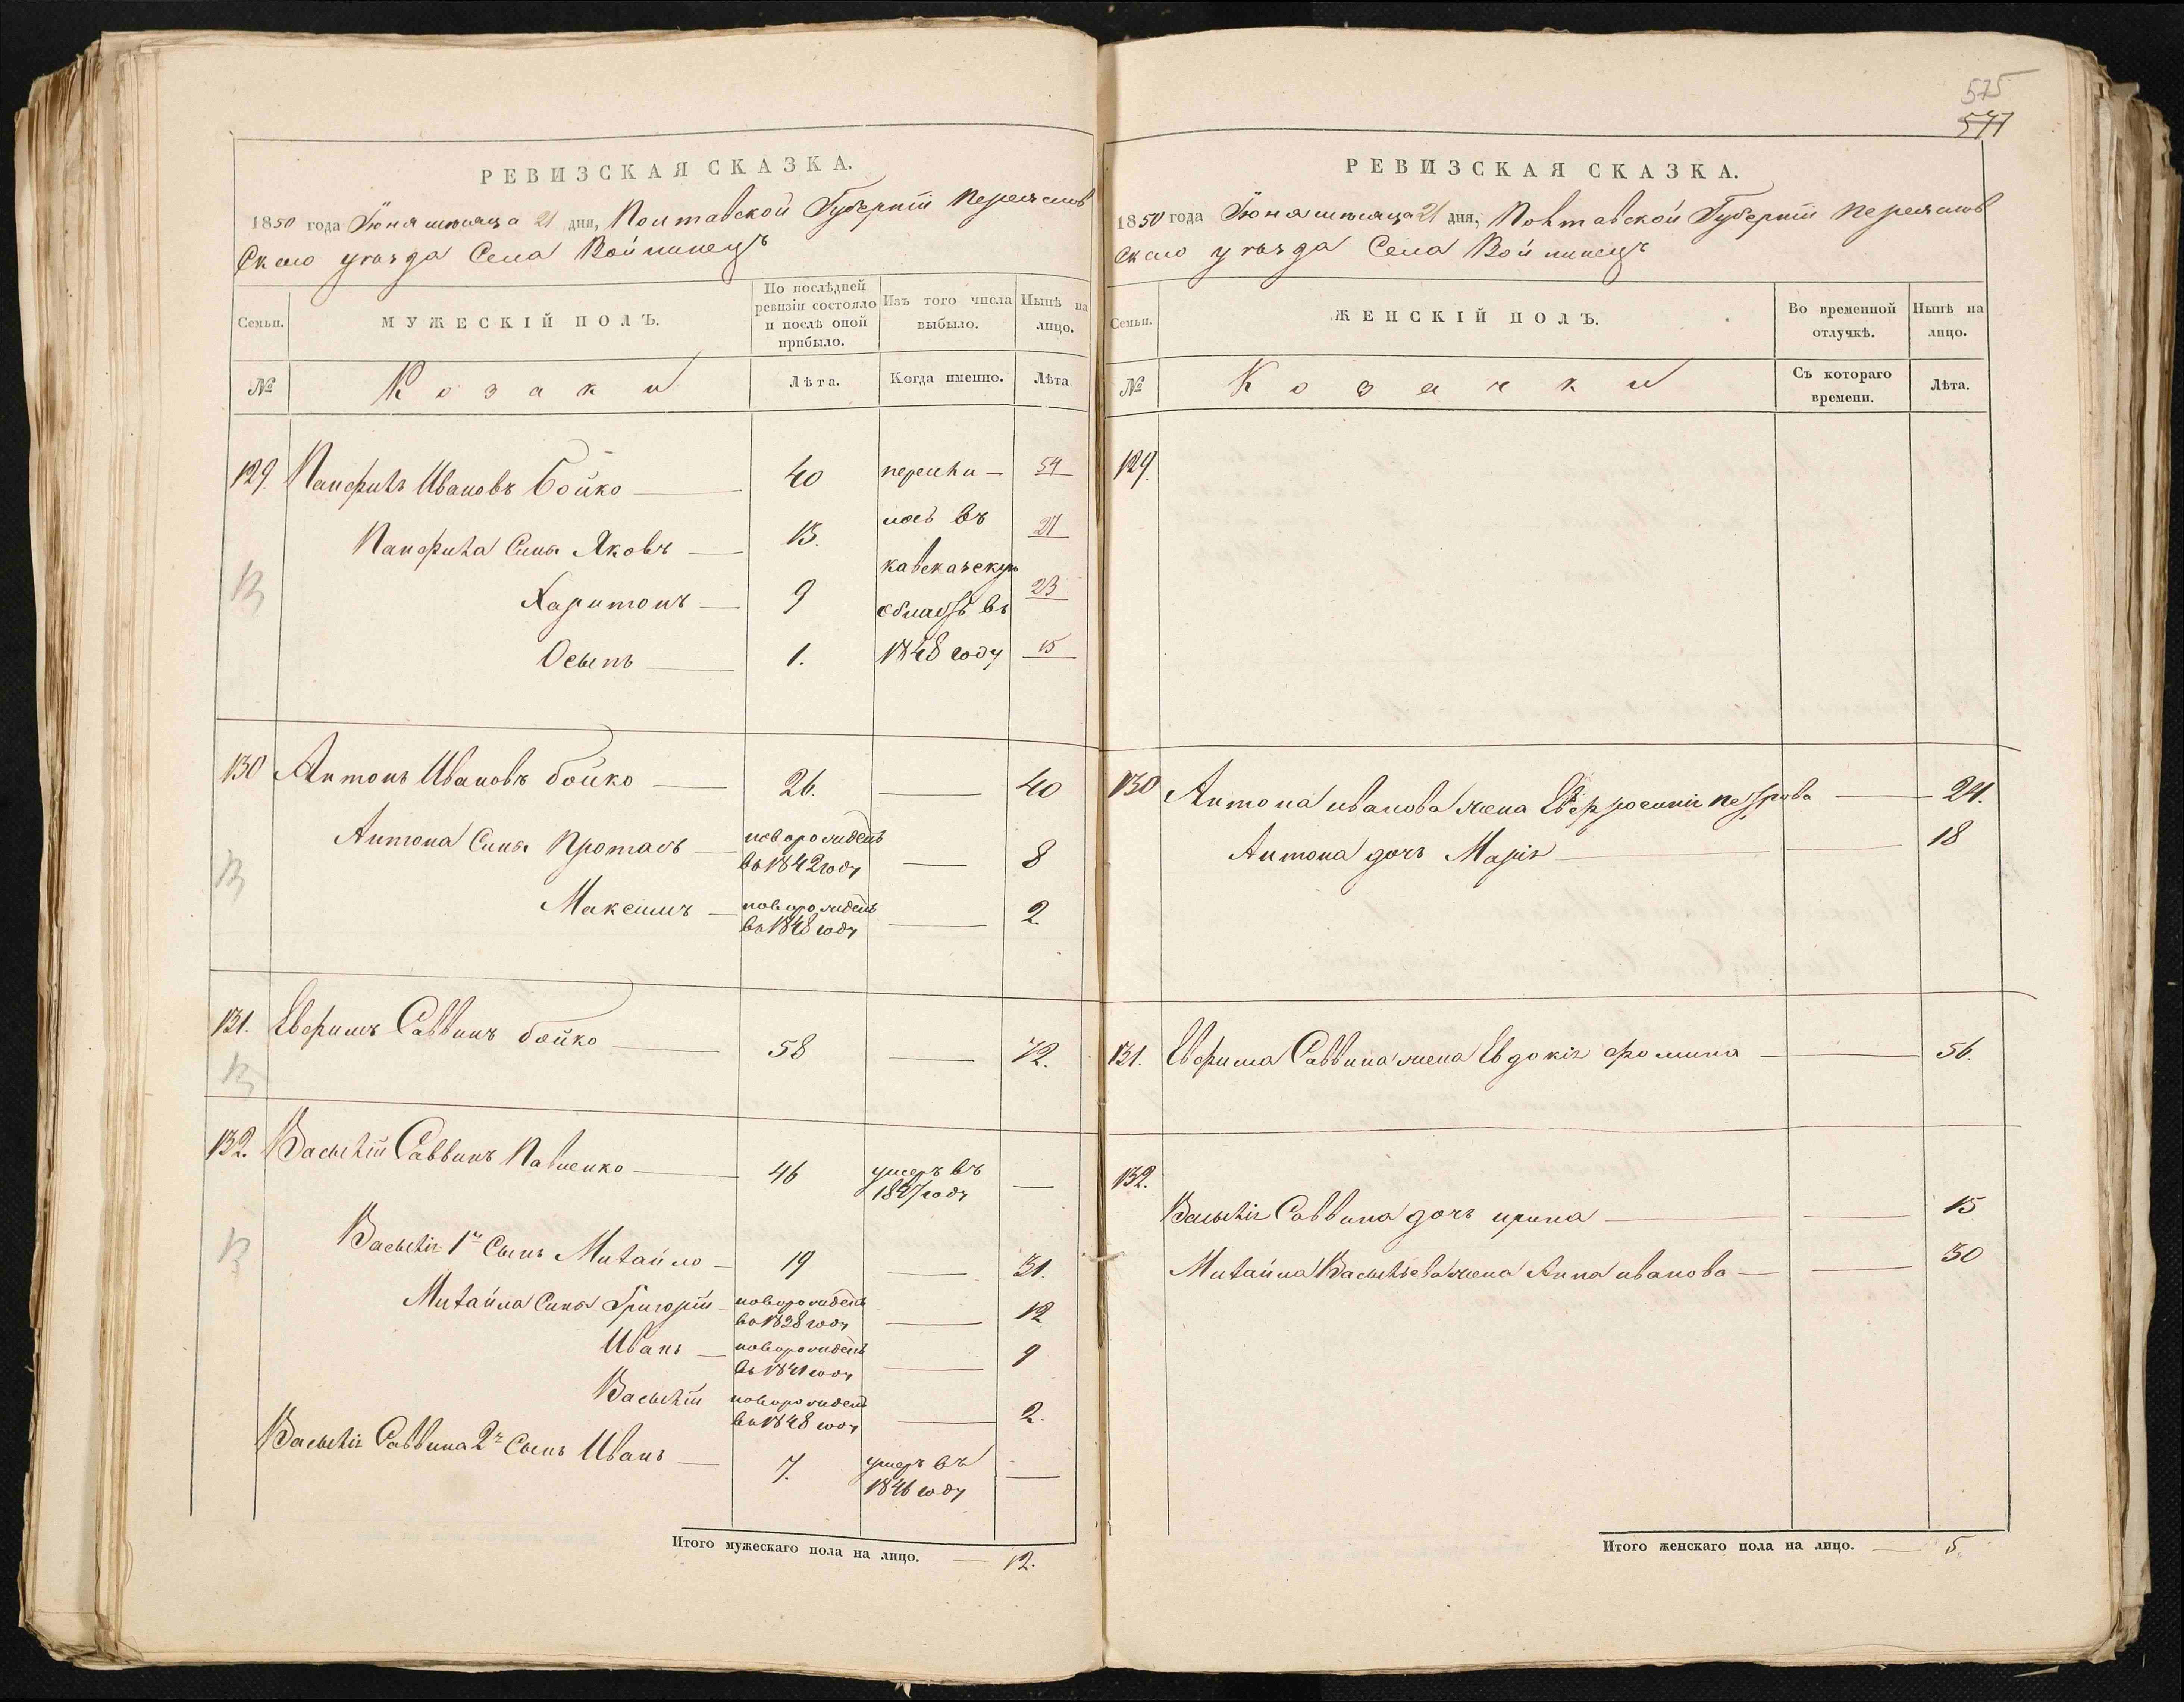 РЕВИЗСКАЯ СКАЗКА.
1850 года Іюня мѣсяца 21 дня, Полтавской Губерніи Переяслов
скаго уѣзда Села Войтинецъ
Семьи.
МУЖЕСКІЙ ПОЛЪ.
По послѣдней ревизіи состояло и послѣ оной прибыло.
Изъ того числа выбыло.
Нынѣ на лицо.
№
Козаки
Лѣта.
Когда именно.
Лѣта
129. Панфилъ Ивановъ Бойко 40 пересили- 54
Панфила Сынъ Яковъ 13. лось въ 27
кавказскую
Харитонъ 9 область въ 23
Осыпъ 1. 1848 году 15
130 Антонъ Ивановъ бойко 26. 40
Антона Сынъ Протасъ новорожденъ
въ 1842 году 8
Максимъ новорожденъ
въ 1848 году 2.
131. Евфимъ Саввинъ бойко 58 72.
132. Васылій Саввинъ Павленко 46 умеръ въ
1847 году
Васылія 1й Сынъ Михайло 19 31.
Михайла Сынъ Григорій новорожденъ
въ 1838 году 12
Иванъ новорожденъ
въ 1841 году 9
Васылій новорожденъ
въ 1848 году 2.
Васылія Саввина 2й Сынъ Иванъ 7. умеръ въ
1846 году
Итого мужескаго пола на лицо. 12.
575
577
РЕВИЗСКАЯ СКАЗКА.
1850 года Іюня мѣсяца 21 дня, Полтавской Губерніи Переяслов
скаго уѣзда Села Войтинецъ
Семьи.
ЖЕНСКІЙ ПОЛЪ.
Во временной отлучкѣ.
Нынѣ на лицо.
№
Козачки
Съ котораго времени.
Лѣта.
129.
130 Антона иванова жена Евфросинія петрова 24.
Антона дочь Марія 18
131. Евфима Саввина жена Евдокія фомина 56.
132.
Васылія Саввина дочь ирина 15
Михайла Васыльева жена Анна иванова 30
Итого женскаго пола на лицо. 5.